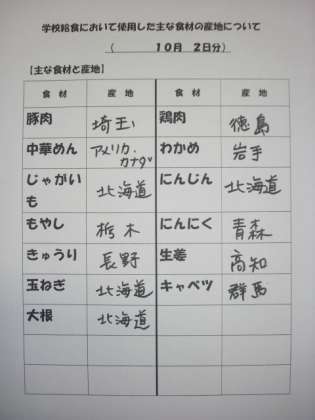 学校給食において使用した主な食材の産地について
（ 10月 2日分）
【主な食材と産地】
食 材 産 地 食 材 産 地
豚肉 埼玉 鶏肉 徳島
中華めん アメリカ・カナダ わかめ 岩手
じゃがいも 北海道 にんじん 北海道
もやし 栃木 にんにく 青森
きゅうり 長野 生姜 高知
玉ねぎ 北海道 キャベツ 群馬
大根 北海道